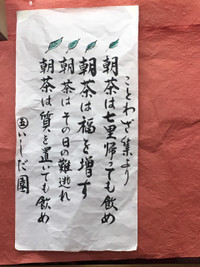 ことわざ集より
朝茶は七里帰っても飲め
朝茶は福を増す
朝茶はその日の難逃れ
朝茶は質を置いても飲め
いしだ園